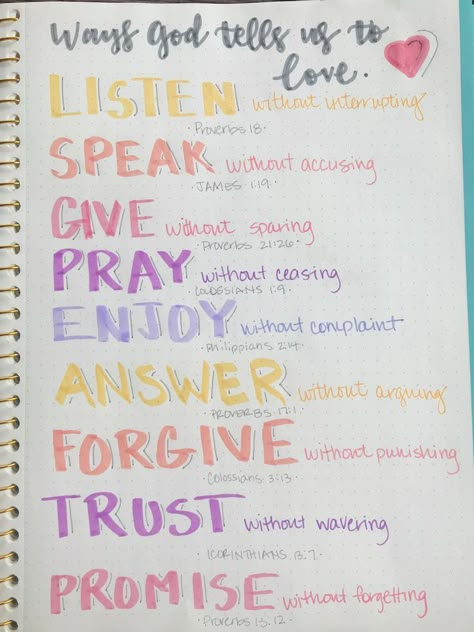 Ways God tells us to
love.
LISTEN without interrupting
· Proverbs 18 ·
SPEAK without accusing
· JAMES 1:19 ·
GIVE without sparing
· Proverbs 21:26 ·
PRAY without ceasing
· COLOSSIANS 1:9 ·
ENJOY without complaint
· Philippians 2:14 ·
ANSWER without arguing
· PROVERBS 17:1 ·
FORGIVE without punishing
· Colossians 3:13 ·
TRUST without wavering
· 1CORINTHIANS 13:7 ·
PROMISE without forgetting
· Proverbs 13:12 ·